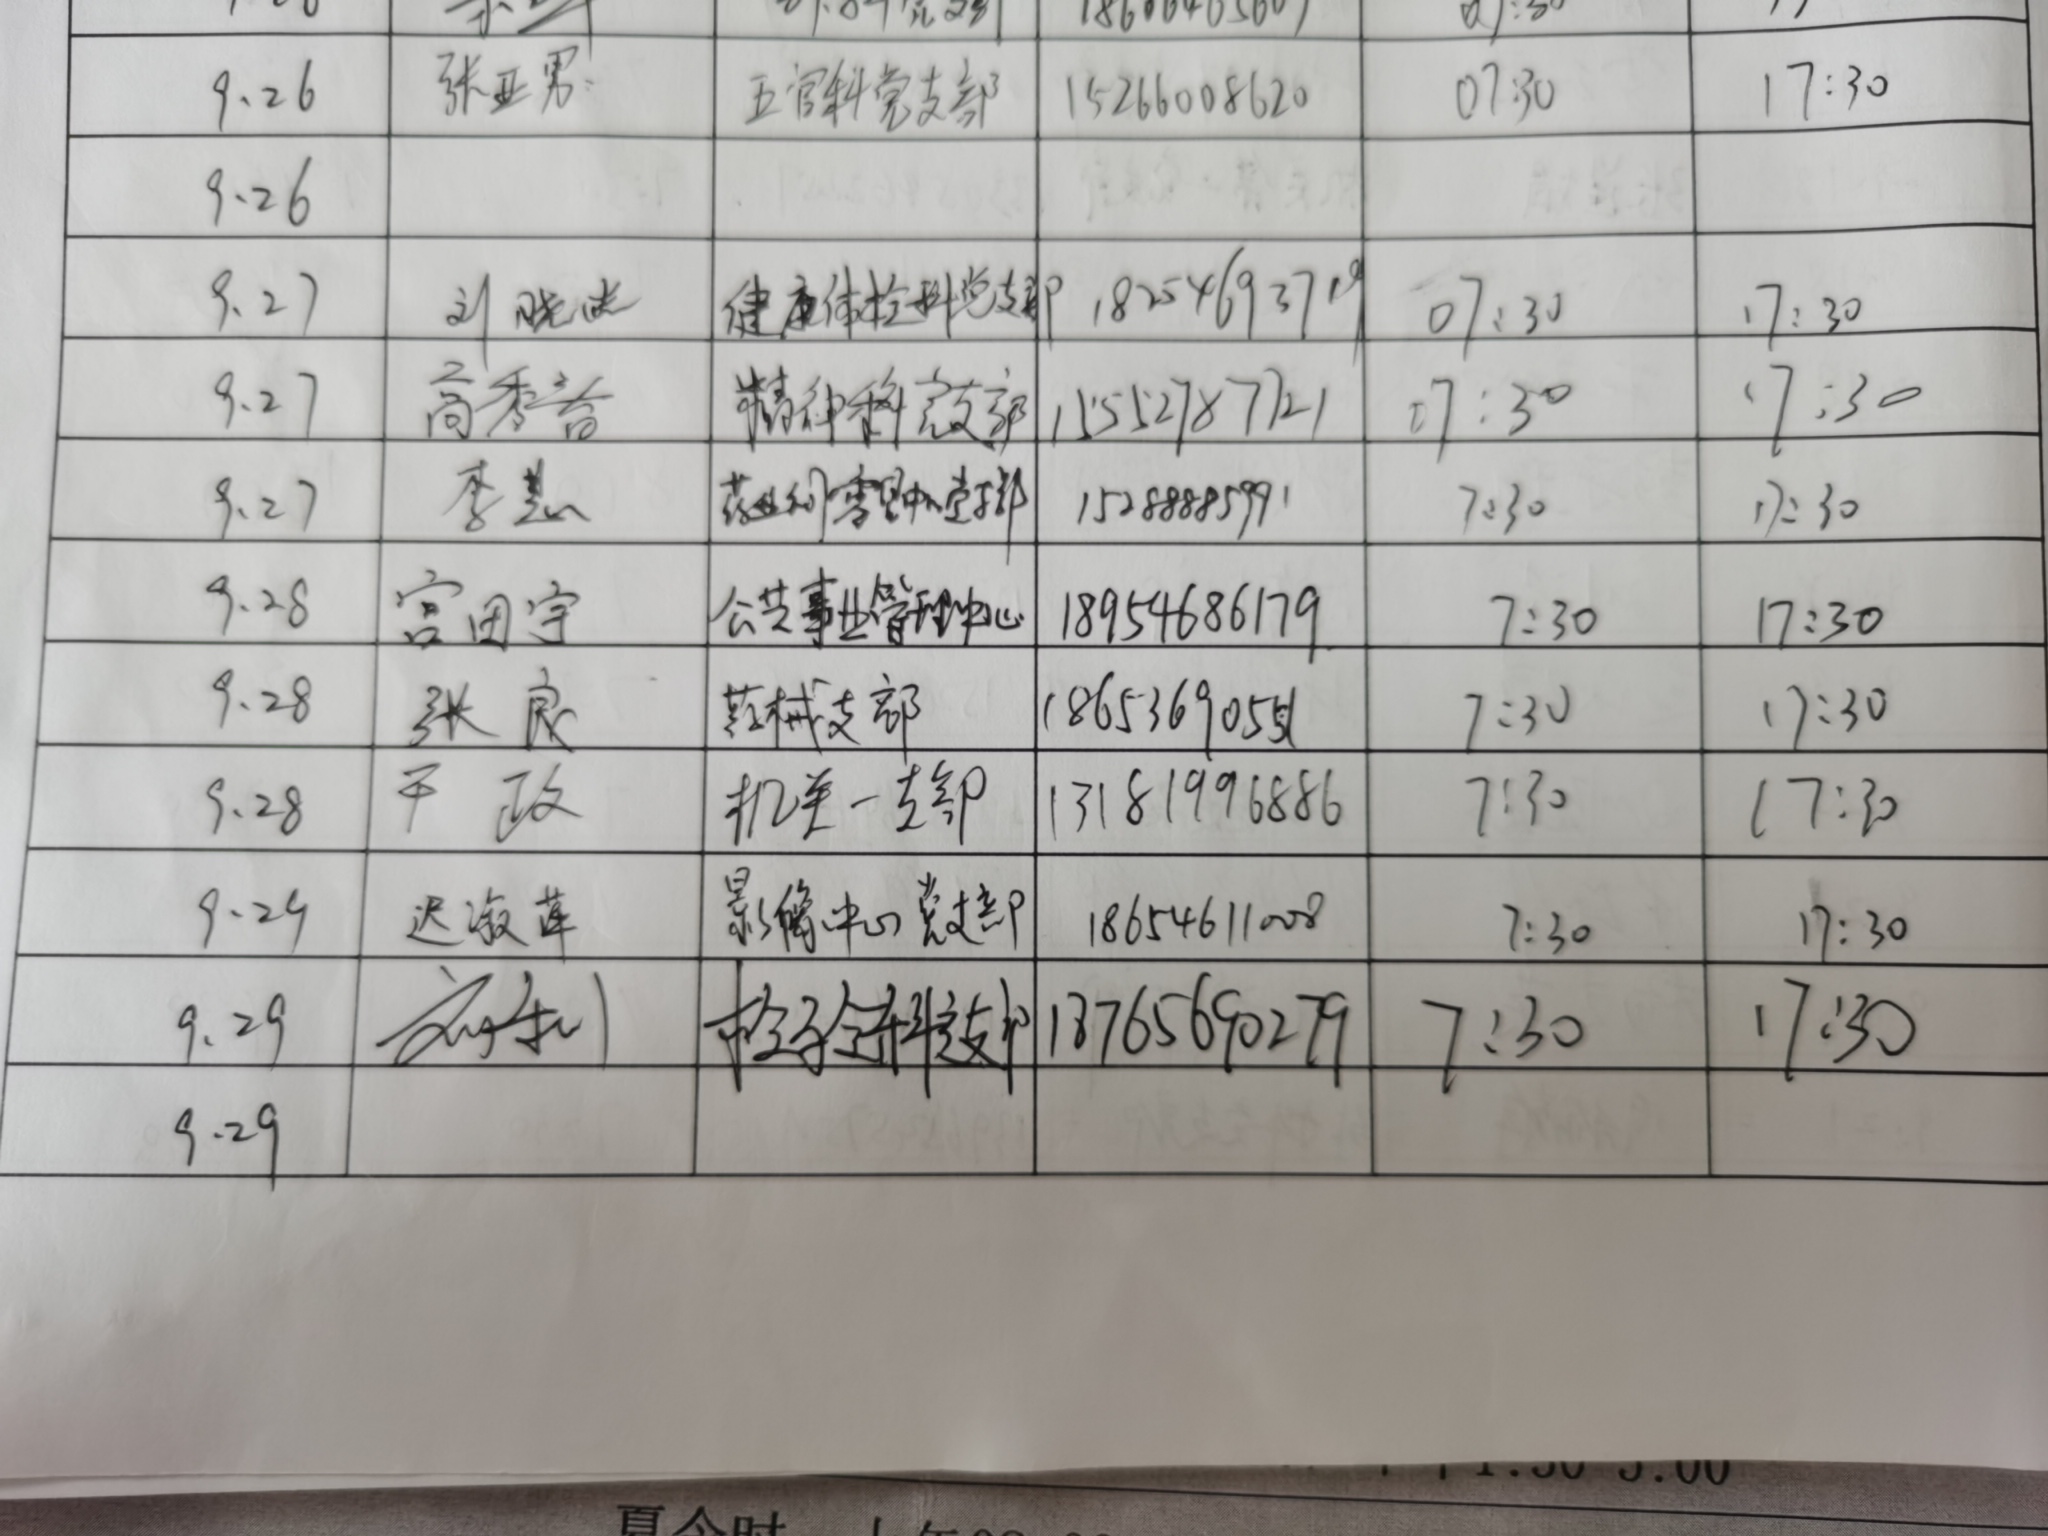 9.26 张亚男 五官科党支部 15266008620 07:30 17:30
9.26
9.27 刘晓 健康体检科党支部 18254693719 07:30 17:30
9.27 高秀 精神科党支部 15552787721 07:30 17:30
9.27 李慧 15288885991 7:30 17:30
9.28 宫田宇 公共事业管理中心 18954686179 7:30 17:30
9.28 张良 药械支部 7:30 17:30
9.28 于政 机关一支部 13181996886 7:30 17:30
9.29 迟淑萍 影像中心党支部 18654611008 7:30 17:30
9.29 18765690279 7:30 17:30
9.29
夏令时